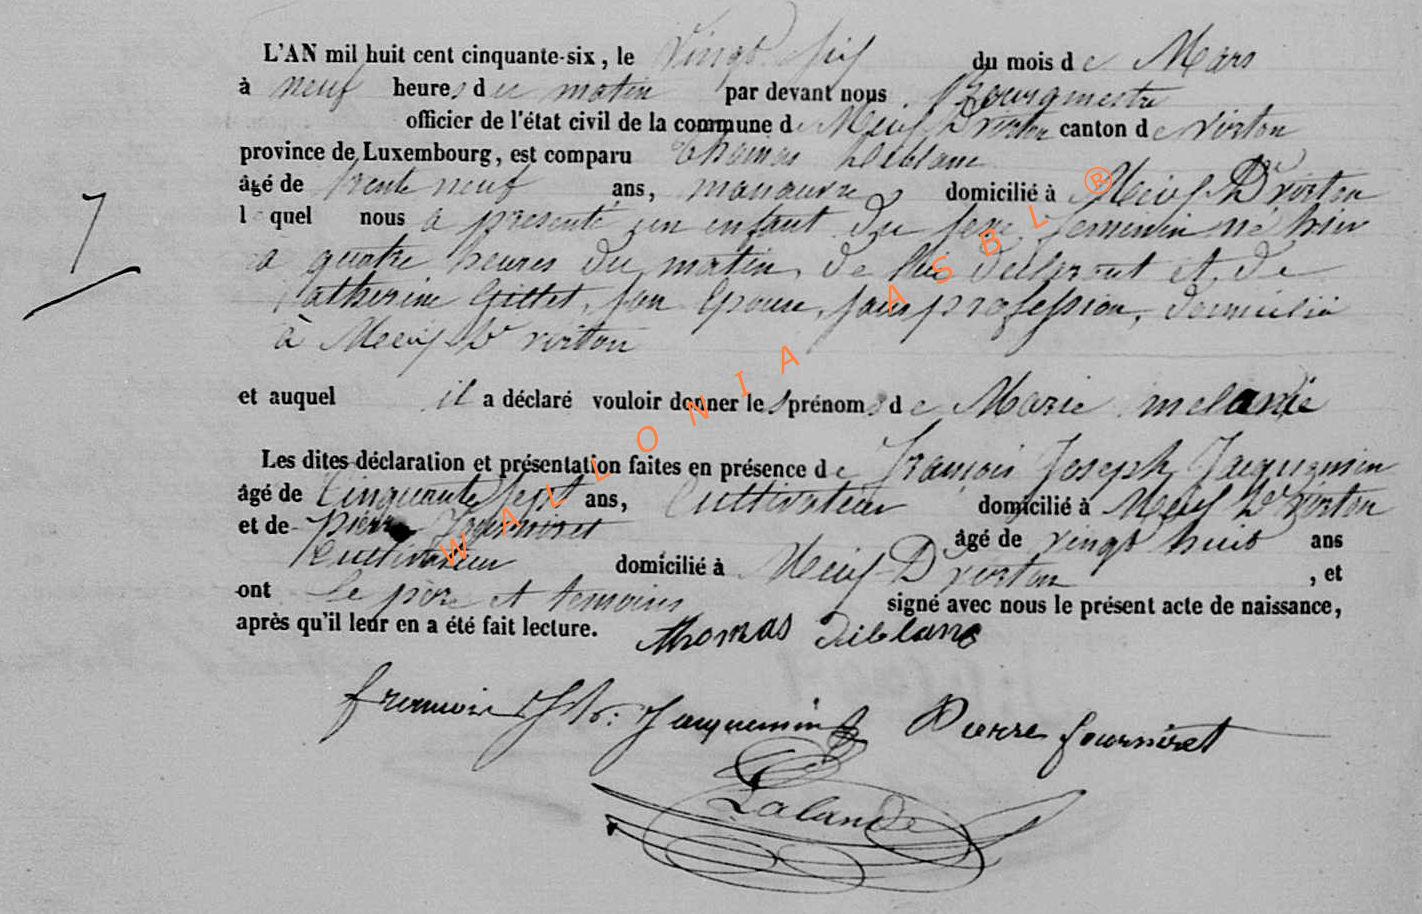 L'AN mil huit cent cinquante-six, le vingt six du mois de Mars
à neuf heures du matin par devant nous Bourgmestre
officier de l'état civil de la commune de Meix Dt virton canton de virton
province de Luxembourg, est comparu thomas
âgé de trente neuf ans, manœuvre domicilié à Meix Dt virton
7
lequel nous a présenté un enfant du sexe féminin né hier
a quatre heures du matin, de lui declarant et de
Catherine Gillet, son Epouse, sans profession, domicilié
à Meix Dt virton
et auquel il a déclaré vouloir donner les prénoms de Marie melanie
Les dites déclaration et présentation faites en présence de François Joseph Jacquemin
âgé de Cinquante sept ans, Cultivateur domicilié à Meix Dt virton
et de pierre âgé de vingt huit ans
Cultivateur domicilié à Meix Dt virton , et
ont le père et temoins signé avec nous le présent acte de naissance,
après qu'il leur en a été fait lecture. thomas
Jacquemin Pierre fourniret
Lalande
WALLONIA ASBL ®